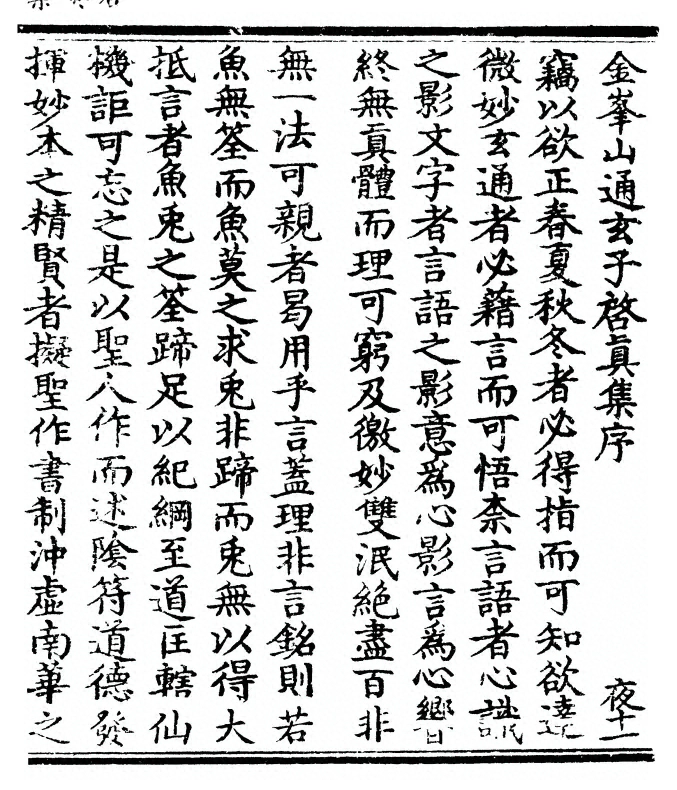 金峯山通玄子啓眞集序 夜十一
竊以欲正春夏秋冬者必得指而可知欲達
微妙玄通者必藉言而可悟柰言語者心識
之影文字者言語之影意爲心影言爲心響
終無眞體而理可窮及徼妙雙泯絕盡百非
無一法可親者曷用乎言蓋理非言銘則若
魚無筌而魚莫之求兎非蹄而兎無以得大
抵言者魚兎之筌蹄足以紀綱至道匡轄仙
機詎可忘之是以聖人作而述陰符道德發
揮妙本之精賢者擬聖作書制沖虛南華之